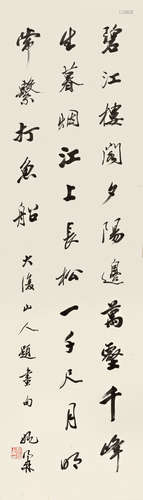 碧江樓閣夕陽邊萬壑千峰
生暮烟江上長松一千尺月明
常繫打魚船
大滌山人題畫句